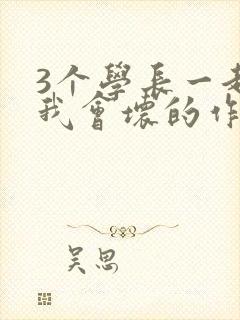 3个學長一起
我會壞的作
吴思